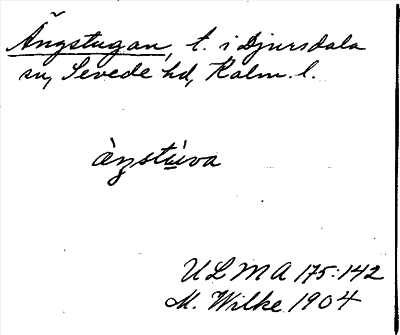 Ängstugan, t. i Djursdala
sn, Sevede hd, Kalm. l.
àŋstúva
ULMA 175:142
M. Wilke 1904